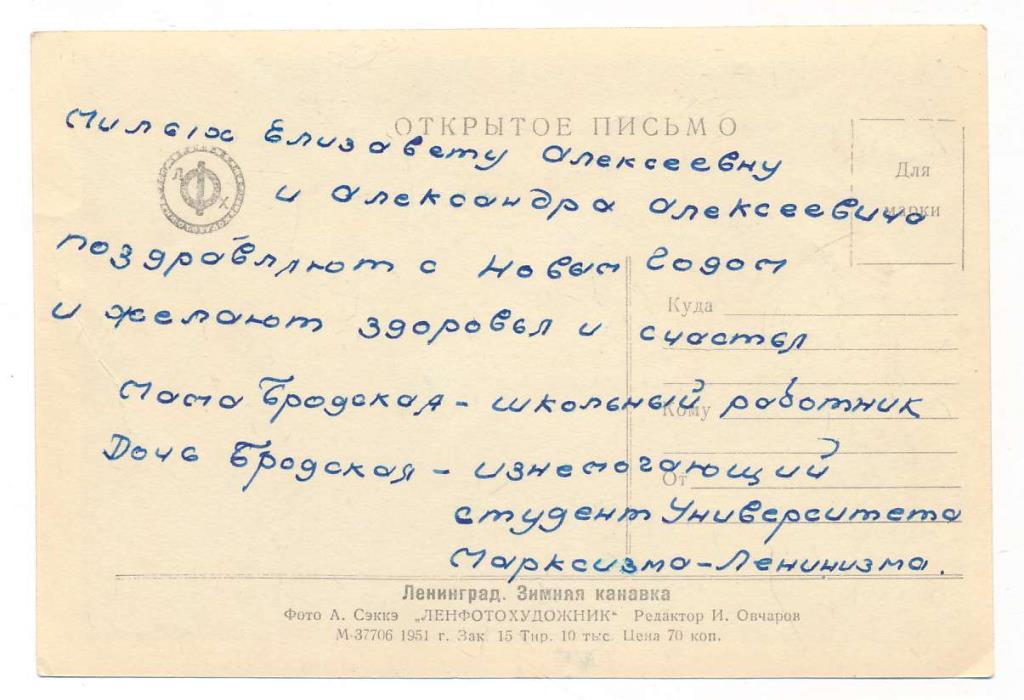 ОТКРЫТОЕ ПИСЬМО
Для
марки
Л Ф Х
Милых Елизавету Алексеевну
и Александра Алексеевича
поздравляют с Новым Годом
и желают здоровья и счастья
Мама Бродская – школьный работник
Дочь Бродская – изнемогающий
студент Университета
Марксизма-Ленинизма.
Куда
Кому
От
Ленинград. Зимняя канавка
Фото А. Сэккэ „ЛЕНФОТОХУДОЖНИК“ Редактор И. Овчаров
М-37706 1951 г. Зак. 15 Тир. 10 тыс. Цена 70 коп.